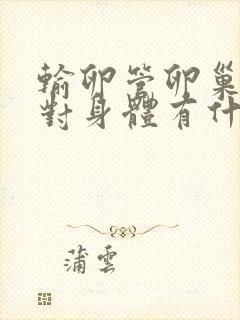 輸卵管卵巢
對身體有什
蒲雲